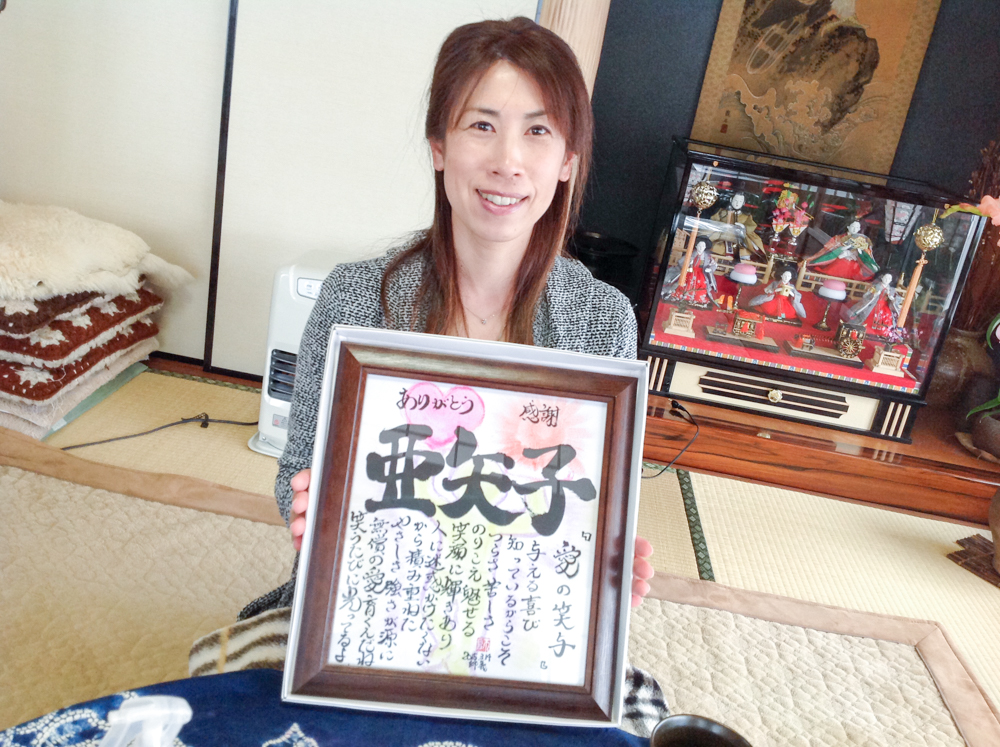 ありがとう
感謝
亜矢子
『愛の笑子』
与える喜び
知っているからこそ
つらさ苦しさ
のりこえ魅せる
笑顔に輝きあり
人に迷惑かけたくはない
から積み重ねた
やさしさ強さが源に
無償の愛育くんだね
笑うたびに光ってるよ